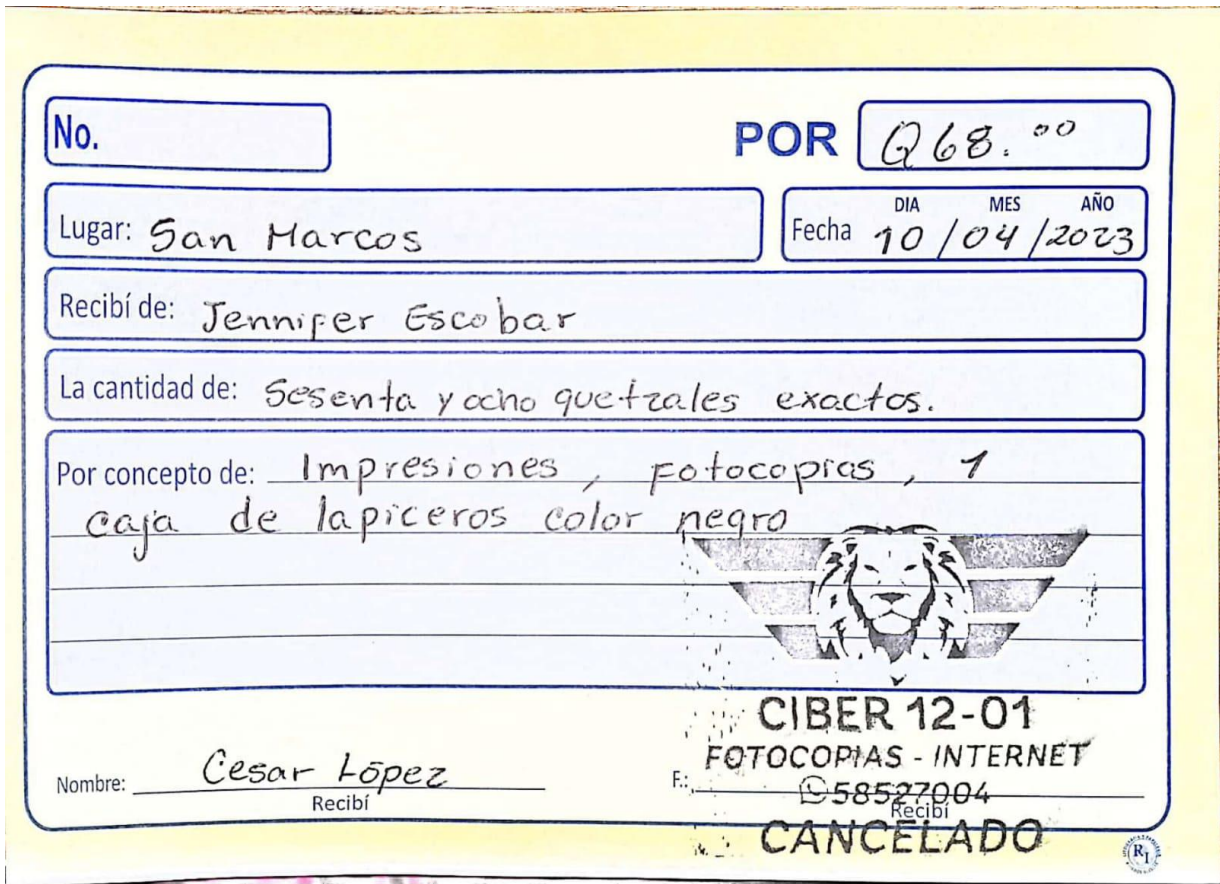 No.
POR Q68.00
Lugar: San Marcos
DIA MES AÑO
Fecha 10/04/2023
Recibí de: Jennifer Escobar
La cantidad de: Sesenta y ocho quetzales exactos.
Por concepto de: Impresiones, Fotocopias, 1
caja de lapiceros color negro
CIBER 12-01
FOTOCOPIAS - INTERNET
58527004
CANCELADO
Nombre: Cesar López
Recibí
F.:
Recibí
RI